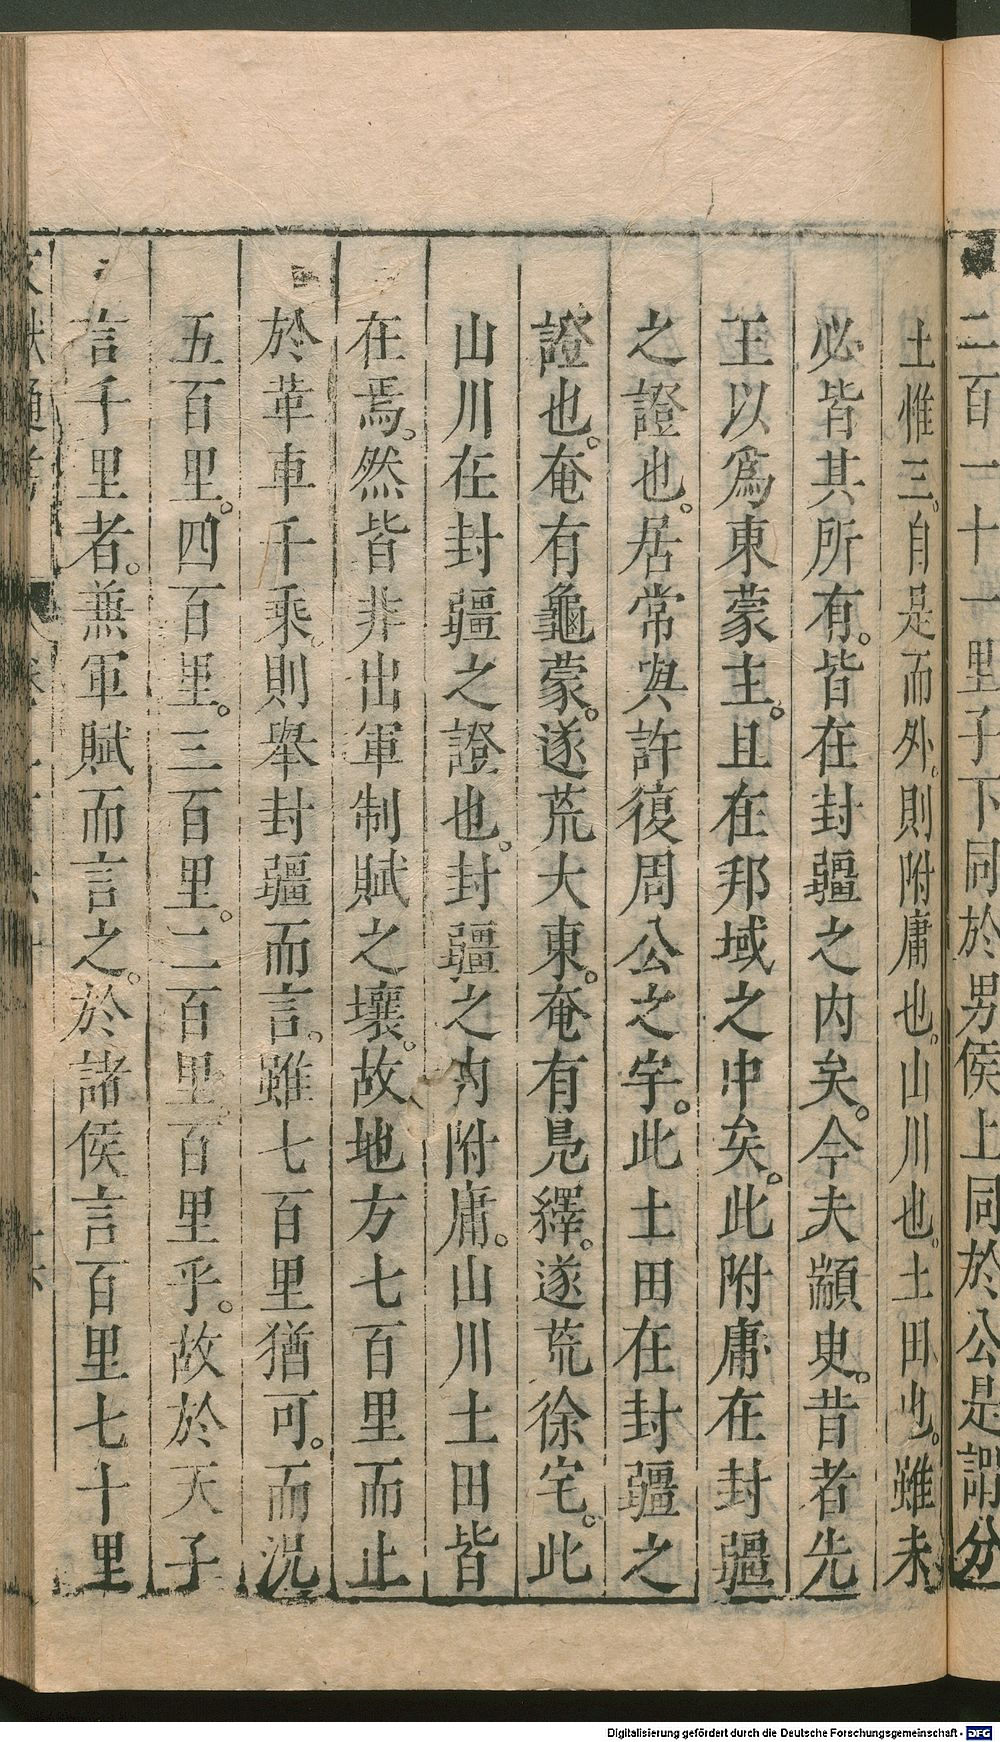 二百一十一里子下同於男侯上同於公是謂分
土惟三。自是而外。則附庸也。山川也。土田也。雖未
必皆其所有。皆在封疆之内矣。今夫顓臾。昔者先
王以爲東蒙主。且在邦域之中矣。此附庸在封疆
之證也。居常與許復周公之宇。此土田在封疆之
證也。奄有龜蒙。遂荒大東。奄有鳧繹。遂荒徐宅。此
山川在封疆之證也。封疆之内附庸。山川土田皆
在焉。然皆非出軍制賦之壤。故地方七百里而止
於革車千乘。則舉封疆而言。雖七百里猶可。而況
五百里。四百里。三百里。二百里。百里乎。故於天子
言千里者。兼軍賦而言之。於諸侯言百里七十里
Digitalisierung gefördert durch die Deutsche Forschungsgemeinschaft - DFG